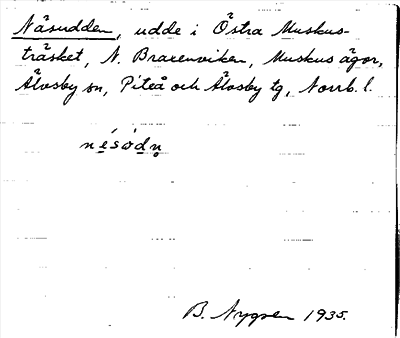 Näsudden, udde i Östra Muskus-
träsket, N. Braxenviken, Muskus ägor,
Älvsby sn, Piteå och Älvsby tg, Norrb. l.
B. Nygren 1935.